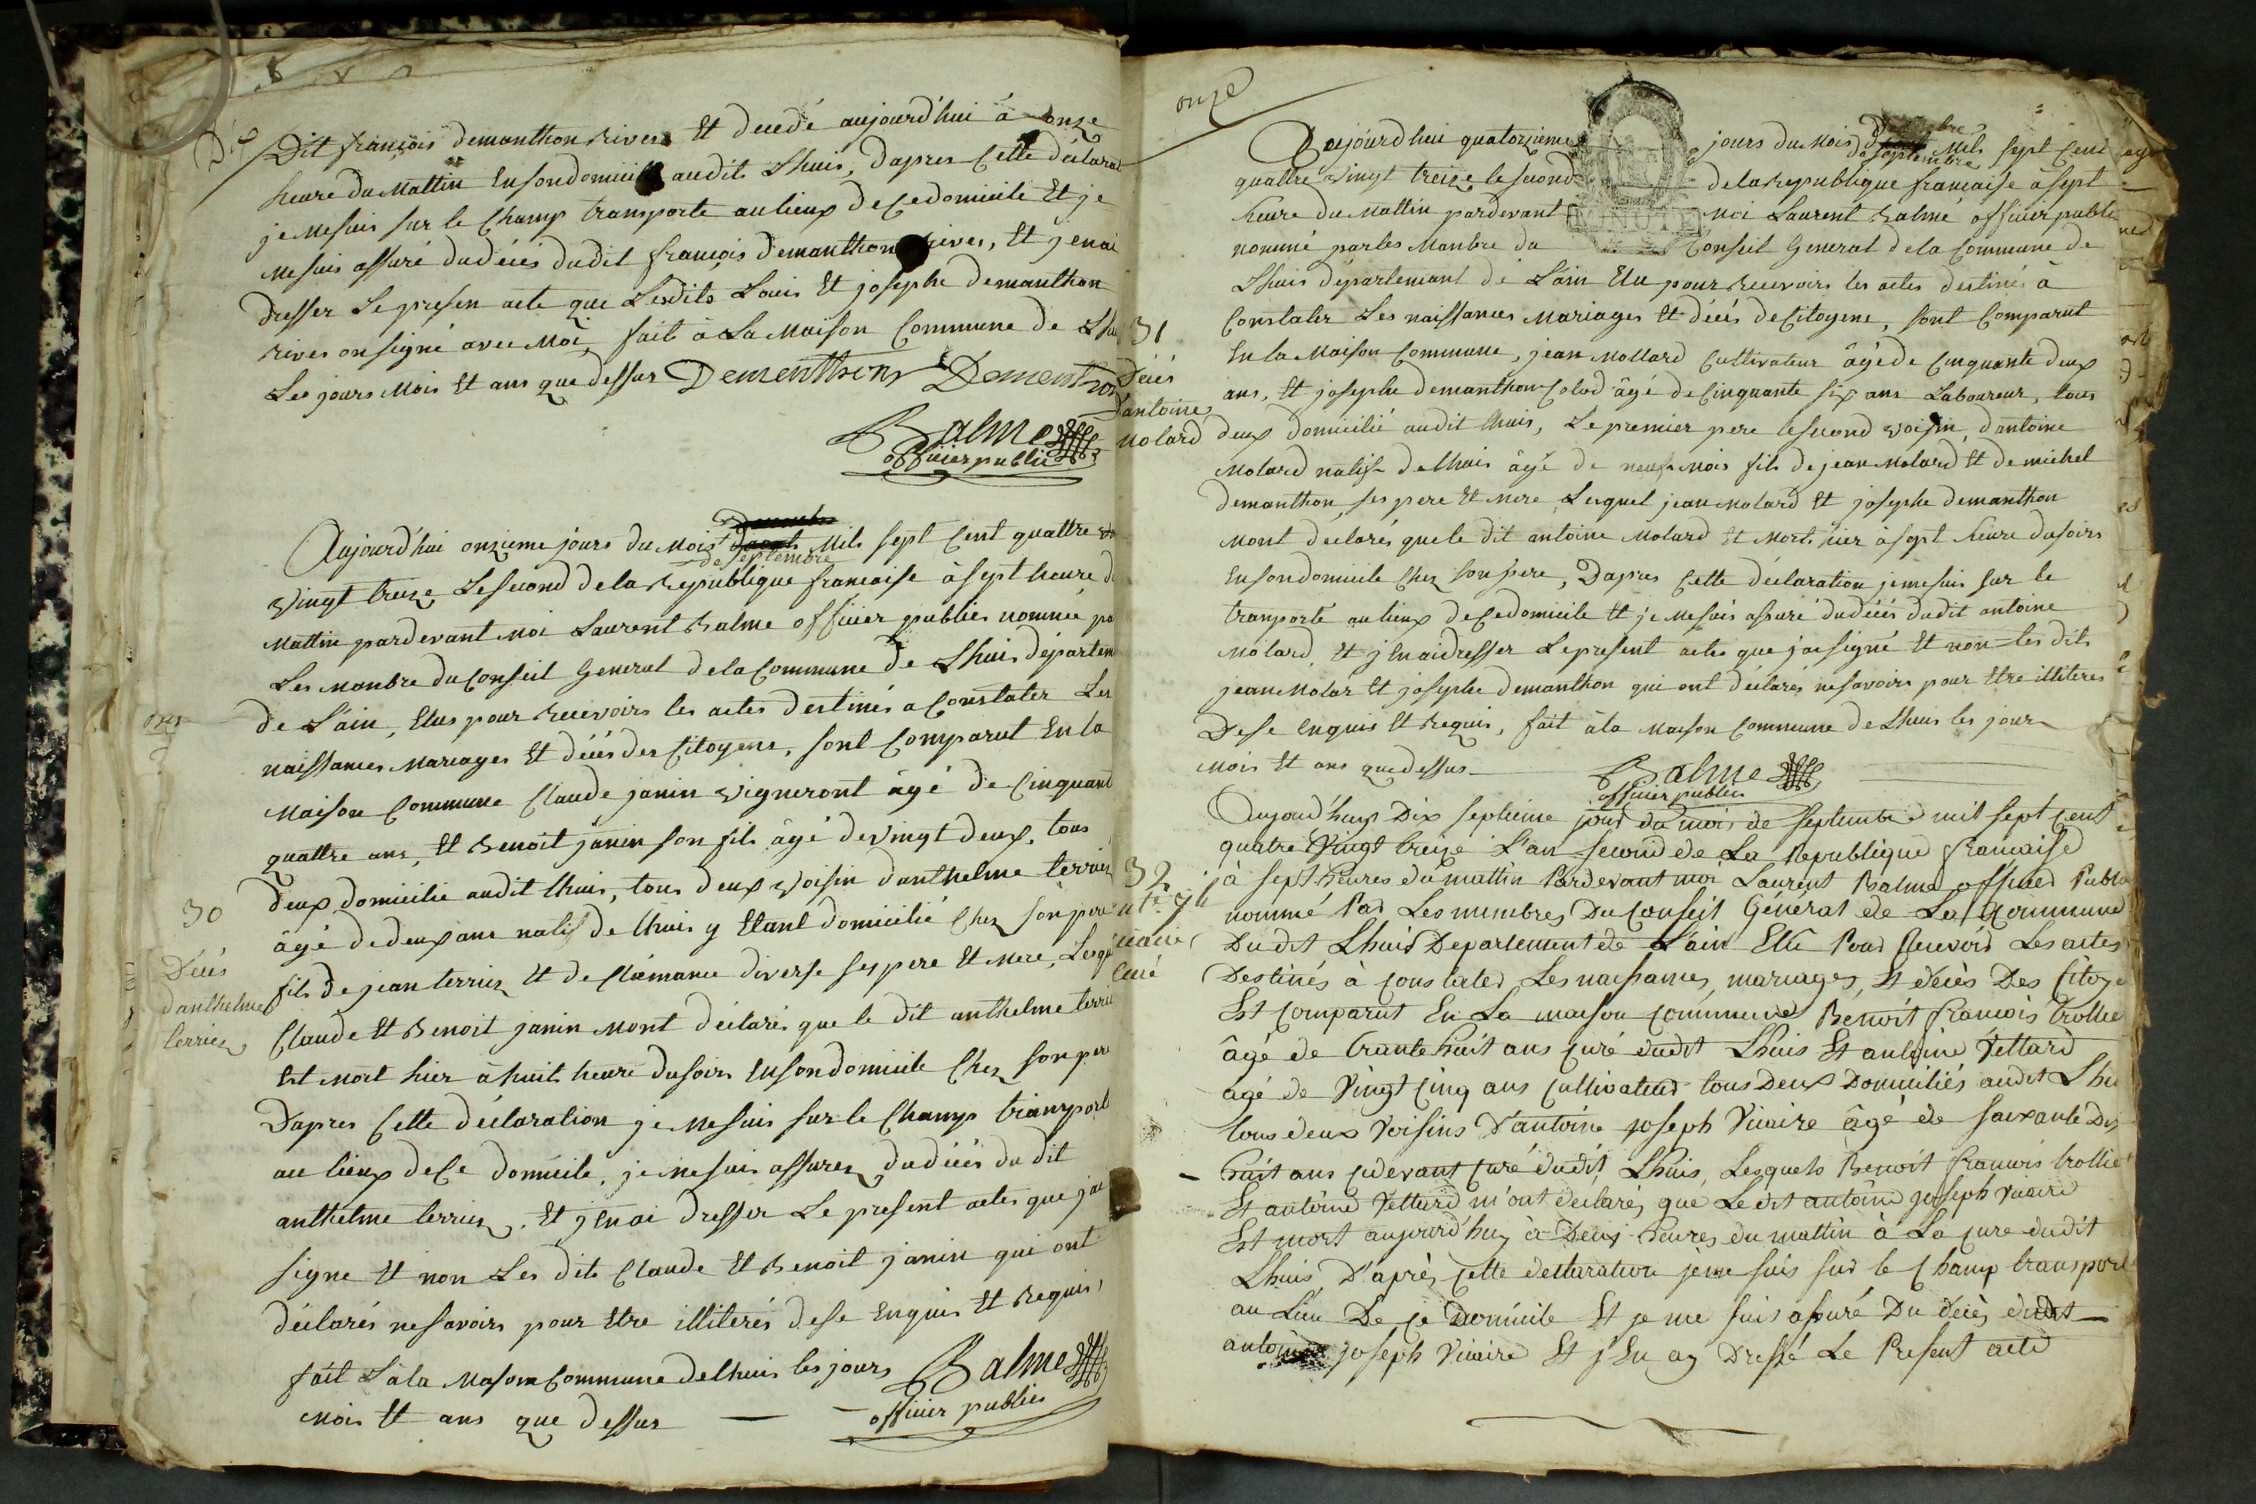 Dix
Dit françois demanthon rives Et decedé aujourd'hui à onze
heure du Mattin En son domicile audit Lhuis, Dapres Cette déclarat
je me suis sur le Champ transporte au lieux de Ce domicile Et je
me suis assuré du décés dudit françois demanthon rives, Et j'enai
dresser Le presen acte que Lesdits Louis Et josephe demanthon
rives on signé avec Moi, fait à La Maison Commune de Lhui
Les jours Mois Et ans que dessus Dementhons Dementhon
Balme
officier public
Aujourd'hui onzieme jours du Mois de septembre Mils sept Cent quattre
vingt treize Le second de la Republique francaise à sept heure d
Mattin pardevant Moi Laurent Balme officier publics nommée pa
Les manbre du Conseil General de la Commune de Lhuis départem
de L'ain, Elus pour recevoirs les actes destinés a Constater Les
naissances Mariages Et décés des Citoyens, sont Comparut En la
Maison Commune Claude janin vigneront âgé de Cinquant
quattre ans, Et Benoit janin son fils âgé de vingt deux, tous
deux domicilie audit lhuis, tous deux voisin danthelme terrier
30
âgé de deux ans natif de lhuis y Etant domicilié Chez son pere
Décés
danthelme
terrier
fils de jean terrier Et de Clémance diverse ses pere Et Mere, Lesqu
Claude Et Benoit janin Mont déclarés que le dit anthelme terrie
Est Mort hier à huit heure du soirs En son domicile Chez son per
Dapres Cette déclaration je Me suis sur le Champ transport
au lieux de Ce domicile, je me suis assurer du décés du dit
anthelme terrier, Et j'Enai dresser Le present actes que jai
signe Et non Les dits Claude Et Benoit janin qui ont
déclarés ne savoirs pour Etre illiterés de se Enquis Et Requis,
fait L'à la Maison Commune de lhuis les jours
Mois Et ans que dessus
Balme
officier publics
onze
Aujourd'hui quatorzieme jours du Mois de septembre Mils sept Cent
quattre vingt treize le second de la Republique francaise à sept
heure du Mattin pardevant Moi Laurent Balme officier public
MINUTE
nommé par les Manbre du Conseil General de la Commune de
Lhuis département de L'ain Elu pour recevoirs les actes destinés à
Constater Les naissances Mariages Et décés de Citoyens, sont Comparut
31
Décés
dantoine
Molard
En la Maison Commune, jean Mollard Cultivateur âgé de Cinquante deux
ans, Et josephe demanthon Colod âgé de Cinquante six ans Laboureur, tous
deux domicilié audit lhuis, Le premier pere le second voisin, dantoine
Molard natif de lhuis âgé de neufs Mois fils de jean Molard Et de michel
demanthon, ses pere Et Mere, Lesquel jean Molard Et josephe demanthon
Mont declarés que le dit antoine Molard Et Mort hier à sept heure du soirs
En son domicile Chez son pere, Dapres Cette déclaration je me suis sur le
tranporté au lieux de Ce domicile Et je Me suis assuré du décés dudit antoine
Molard, Et j'En ai dresser Le present actes que jai signé Et non les dits
jean Molar Et josephe demanthon qui ont déclarés ne savoirs pour Etre illiteres
De se Enquis Et Requis, fait à la Maison Commune de Lhuis les jour
Mois Et ans que dessus
Balme
officier publics
Aujourd'huy Dix septieme jour du mois de septembre mil sept cent
quatre Vingt treize L'an second de La Republique francaise
32
à sept heures du mattin Pardevant moi Laurent Balme officier Public
nommé Par Les membres Du Conseil Général de La Commune
Dudit Lhuis Departement de L'ain Elu Pour Recevoir Les actes
Curé
Destinés à Constater Les naissances, mariages, Et décès Des Citoye
Est Comparut En La maison Commune Benoit francois trollie
âgé de trante huit ans Curé dudit Lhuis Et antoine Vettard
agé de Vingt Cinq ans Cultivateur tous Deux Domiciliés audit Lhu
tous deux Voisins D'antoine joseph Vicaire âgé de soixante Dix
huit ans cydevant Curé dudit Lhuis, Lesquels Benoit francois trollie
Et antoine Vettard m'ont declarés que Ledit antoine joseph Vicaire
Est mort aujourd'huy à Deux heures du mattin à La Cure dudit
Lhuis D'après Cette declaration je me suis sur le Champ transport
au Lieu De Ce Domicile Et je me suis assuré Du décès dudit
antoine joseph Vicaire Et j'En ay Dressé Le Present acte